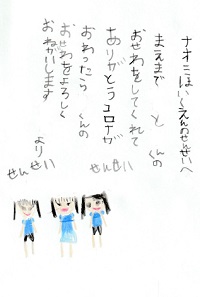 ナオミほいくえんのせんせいへ
まえまで と くんの
おせわをしてくれて
ありがとうコロナが
おわったら くんの
おせわをよろしく
おねがいします
より
せんせい
せんせい